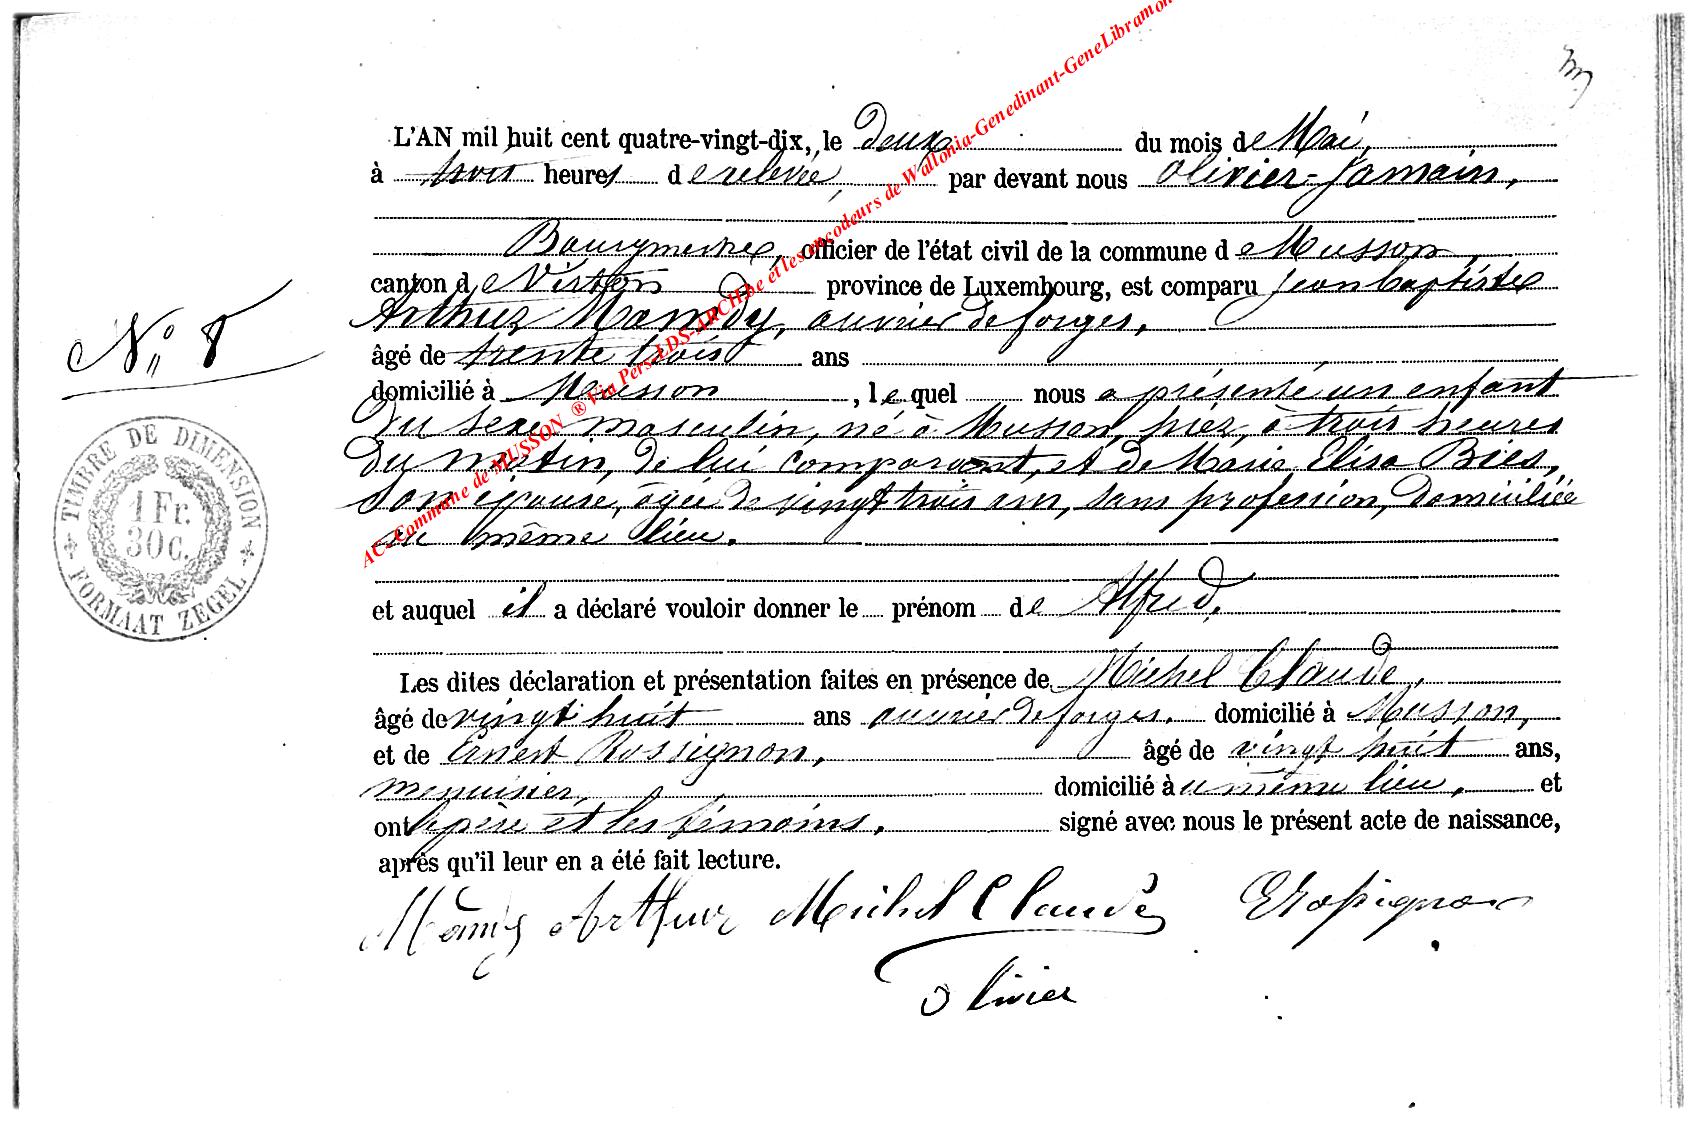 L'AN mil huit cent quatre-vingt-dix, le deux du mois de Mai,
à trois heures de relevée, par devant nous Olivier-Jamain,
Bourgmestre, officier de l'état civil de la commune de Musson,
canton de Virton province de Luxembourg, est comparu Jean baptiste
Arthur Mamdy, ouvrier de forges,
âgé de trente trois ans
domicilié à Musson, lequel nous a présenté un enfant
du sexe masculin, né à Musson, hier, à trois heures
du matin, de lui comparant, et de Marie Elisa Bies,
son épouse, âgée de vingt trois ans, sans profession, domiciliée
au même lieu.
et auquel il a déclaré vouloir donner le prénom de Alfred.
Les dites déclaration et présentation faites en présence de Michel Claude,
âgé de vingt huit ans ouvrier de forges. domicilié à Musson,
et de Ernest Rossignon, âgé de vingt huit ans,
menuisier, domicilié au même lieu, et
ont le père et les témoins, signé avec nous le présent acte de naissance,
après qu'il leur en a été fait lecture.
Arthur Michel Claude ERossignon
Olivier
N° 8
TIMBRE DE DIMENSION
1 Fr.
30 C.
FORMAAT ZEGEL
AC-Commune de MUSSON ® Via Pers-LDS-ARCH.be et les encodeurs de Wallonia-Genedinant-GeneLibramon